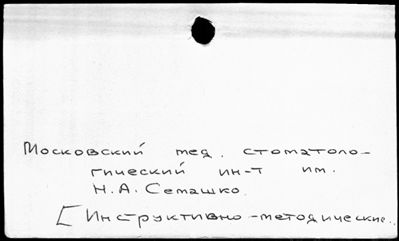 Московский мед. стоматоло-
гический ин-т им.
Н.А. Семашко.
[Инструктивно-методические..